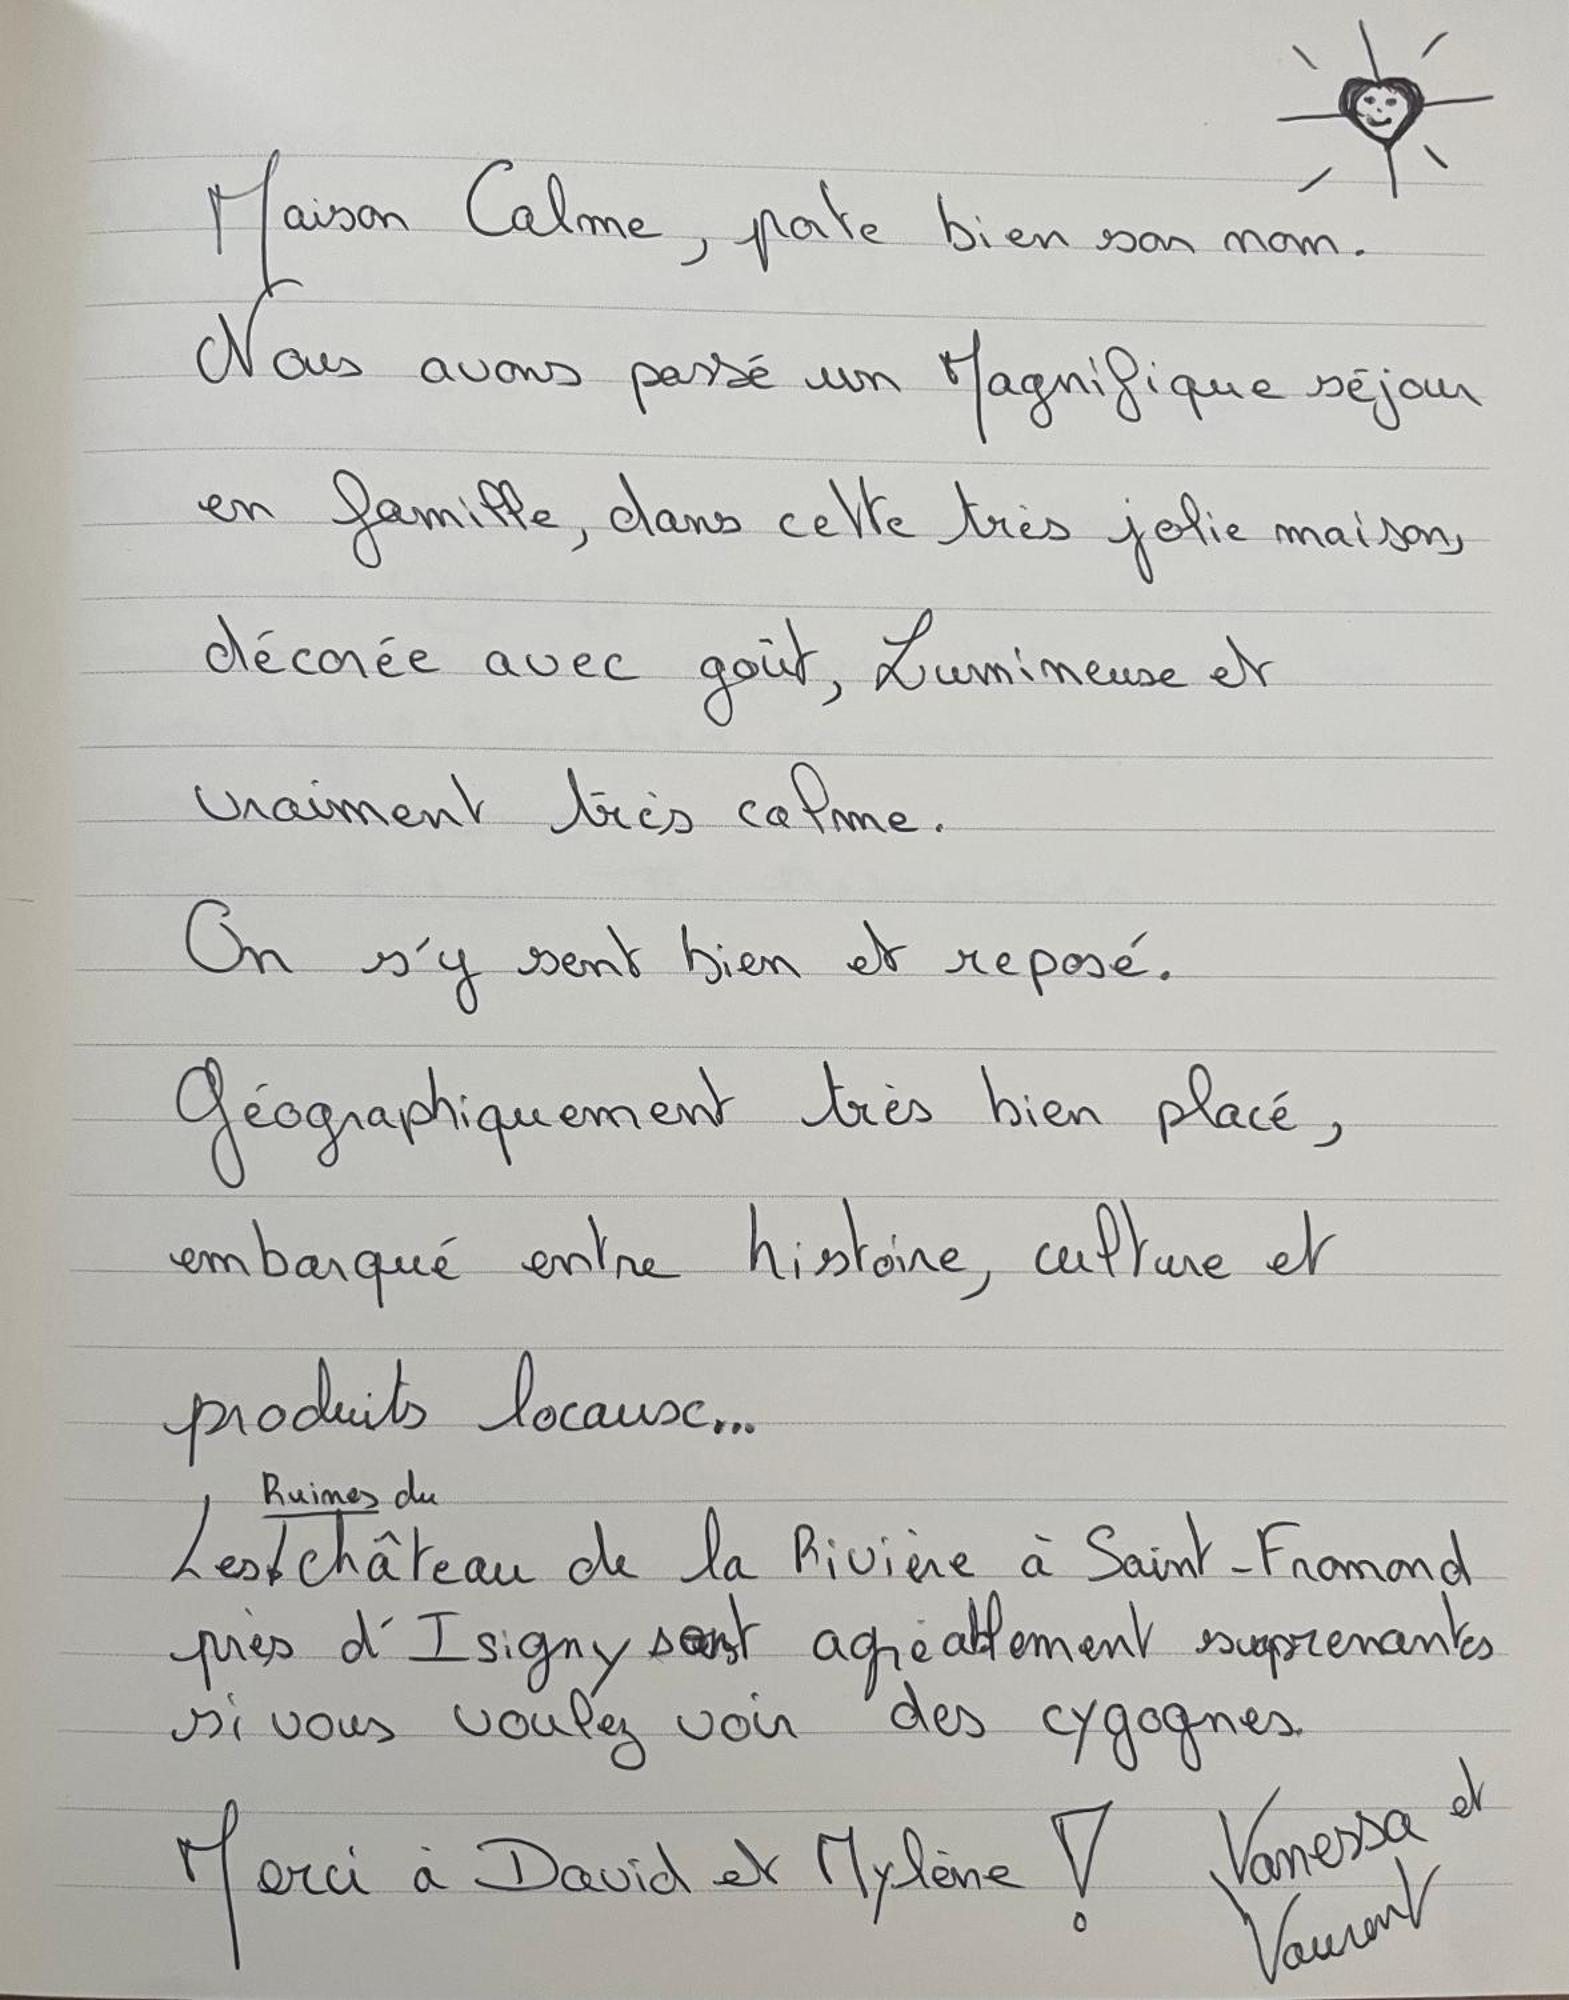 Maison Calme, porte bien son nom.
Nous avons passé un Magnifique séjour
en famille, dans cette très jolie maison,
décorée avec goût, Lumineuse et
vraiment très calme.
On s'y sent bien et reposé.
Géographiquement très bien placé,
embarqué entre histoire, culture et
produits locaux...
Ruines du
Les château de la Rivière à Saint-Fromond
près d'Isigny sont agréablement suprenantes
si vous voulez voir des cygognes.
Merci à David et Mylène !
Vanessa et